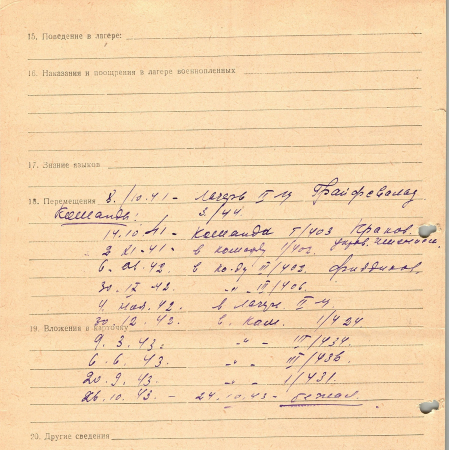 15. Поведение в лагере:
16. Наказания и поощрения в лагере военнопленных
17. Знание языков
18. Перемещения 8./10.41 - лагерь II ц Грайфсвальд
Команды: 2/44
14.10.41 - команда I/403
2 XI-41 - в команду 1/403
6. 01. 42. в ко-ду II/403.
30. IV 42. " - IV/406.
4. мая. 42. в лагерь II ц
30. 12. 42. в ком. 1/424
19. Вложения в карточку
9. 3. 43. " - III/434.
6. 6. 43. " - III/436.
20. 9. 43. " - 1/431.
26. 10. 43 - 24. 10. 43 - бежал.
20. Другие сведения